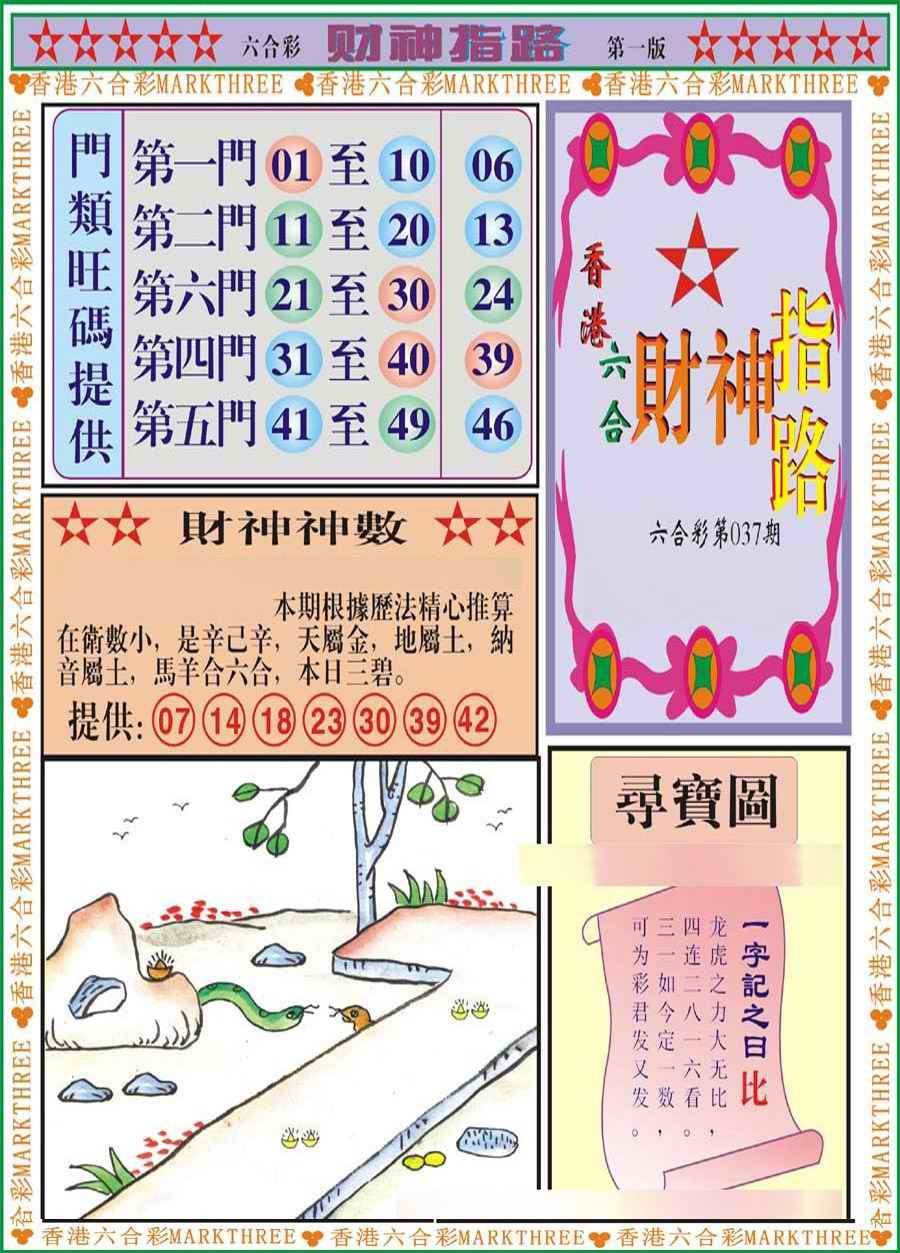 六合彩 财神指路 第一版
香港六合彩MARKTHREE 香港六合彩MARKTHREE 香港六合彩MARKTHREE
門類旺碼提供
第一門 01 至 10 06
第二門 11 至 20 13
第六門 21 至 30 24
第四門 31 至 40 39
第五門 41 至 49 46
香港六合
財神指路
六合彩第037期
財神神數
本期根據歷法精心推算
在衛數小，是辛己辛，天屬金，地屬土，納
音屬土，馬羊合六合，本日三碧。
提供: 07 14 18 23 30 39 42
尋寶圖
一字記之日比
龙虎之力大无比，
四连二八一六看。
三一如今定一数，
可为彩君发又发。
香港六合彩MARKTHREE 香港六合彩MARKTHREE 香港六合彩MARKTHREE 合彩MARKTHREE
香港六合彩MARKTHREE 香港六合彩MARKTHREE 香港六合彩MARKTHREE 合彩MARKTHREE
香港六合彩MARKTHREE 香港六合彩MARKTHREE 香港六合彩MARKTHREE